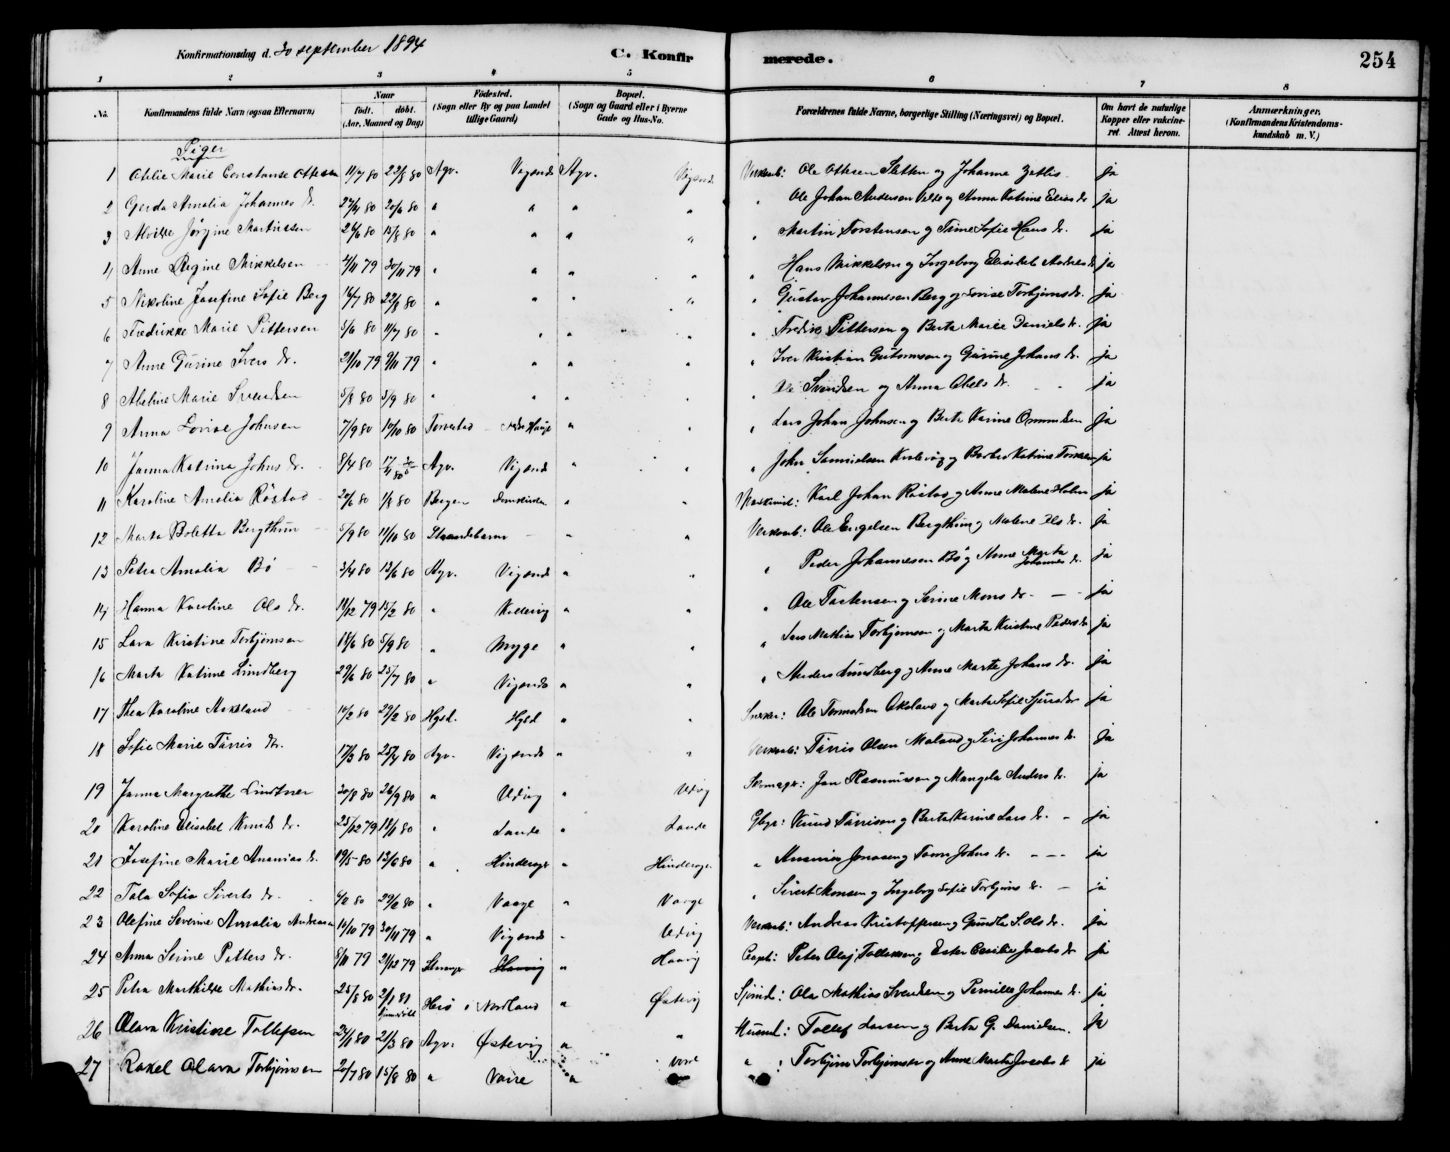 Konfirmationsdag d. 30 september 1894 C. Konfirmerede. 254
1 2 3 4 5 6 7 8
No. Konfirmandens fulde Navn (ogsaa Efternavn) Naar født. døbt. (Aar, Maaned og Dag) Fødested. (Sogn eller By og paa Landet tillige Gaard) Bopæl. (Sogn og Gaard eller i Byerne Gade og Hus-No. Forældrenes fulde Navne, borgerlige Stilling (Næringsvei) og Bopæl. Om havt de naturlige Kopper eller vaccineret. Attest herom. Anmærkninger. (Konfirmandens Kristendomskundskab m. V.)
Piger
1 Othilie Marie Constanse Ottesen 11/7 80 22/8 80 Agv. Vigende Agv. Vigende Ole Ottesen Sletten og Johanne ja
2 Gerda Amalia Johannes dr. 27/4 80 20/6 80 " " " " " Ole Johan Andersen og Anna Katrine Elias dr ja
3 Alvilde Jørgine Martinsen 26/6 80 15/8 80 " " " " " Martin Torstensen og Trine Sofie Hans dr. ja
4 Anne Regine Mikkelsen 4/11 79 30/11 79 " " " " " Hans Mikkelsen og Ingeborg Elisabet dr ja
5 Nikoline Josefine Sofie Berg 16/7 80 22/8 80 " " " " " Gustav Johannesen Berg og Lovise Torbjørns dr. ja
6 Fredrikke Marie Pettersen 5/6 80 11/7 80 " " " " " Fredrik Pettersen og Berta Marie Daniels dr. ja
7 Anne Gurine Ivers dr. 21/10 79 9/11 79 " " " " " Iver Kristian Gutormsen og Gurine Johans dr. ja
8 Abeline Marie Svendsen 5/8 80 5/9 80 " " " " " Svendsen og Anna Abels dr. ja
9 Anna Lovise Johnsen 7/9 80 10/10 80 Torvestad " " " Lars Johan Johnsen og Berte Karine Ommundsen ja
10 Janna Katrina Johns dr. 8/4 80 Agv. Vigende " " " John Samuelsen og Katrine ja
11 Karoline Amelia Røstad 20/6 80 1/8 80 Bergen Domkirken " " Karl Johan Røstad og Anne Malene Holm ja
12 Marta Boletta Bergthun 5/9 80 11/10 80 Strandebarm " " Ole Engelsen Bergthun og Malene Ols dr. ja
13 Petra Amalia Bø 3/4 80 13/6 80 Agv. Vigende " " " Peder Johannesen Bø og Anne Marta Johannes dr. ja
14 Hanna Karoline Ols dr. 18/12 79 15/2 80 " " " " Ole Tostensen og Serine Mons dr. ja
15 Lava Kristine Torbjørnsen 18/6 80 5/9 80 " Myge " " " Lars Mathias Torbjørnsen og Marta Kristine Peders dr ja
16 Marta Katrine Lindberg 29/6 80 25/7 80 " Vigende " " " Anders Lindberg og Anne Marta Johans dr. ja
17 Thea Karoline Aakeland 10/2 80 29/2 80 Hgsd. " " Ole Tormodsen og Marta Sofie dr ja
18 Sofie Marie Tørris dr. 17/3 80 25/4 80 Agv. Vigende " " Tørris Olsen og Siri Johannes dr. ja
19 Janna Margrethe Lindtner 20/8 80 26/9 80 " Udvig " Udvig Skomager: Jan Rasmussen og Mangela Anders dr. ja
20 Karoline Elisabet Knuds dr. 25/12 79 18/1 80 " Lande " Lande Knud Tørrisen og Berta Karine Lars dr. ja
21 Josefine Marie Ananias dr. 19/5 80 13/6 80 " " Ananias Jonasen og Johns dr. ja
22 Tala Sofia Siverts dr. 4/2 80 29/2 80 " Vaage " Vaage " Sivert Monsen og Ingeborg Sofie Torbjørns dr. ja
23 Olefine Severine Amalia Andreasen 14/10 79 30/11 79 " Vigende " Udvig Andreas Kristoffersen og Gundla S. Ols dr. ja
24 Anna Serine Petters dr. 8/11 79 21/12 79 " Haavig Capt: Peter Olaj Tollefsen og Ester Cecilie Jacobs dr ja
25 Petra Marthilde Mathias dr. 25/8 80 2/1 81 Herø i Nordland " Østevig Sjømd: Ola Mathias Svendsen og Pernille Johannes dr. ja
26 Olava Kristine Tollefsen 80 21/3 80 Agv. Østevig " " Husmd: Tollef Larsen og Berta G. Danielsen. ja
27 Rakel Olava Torbjørnsen 20/7 80 15/8 80 " " " Torbjørn Torbjørnsen og Anne Marta Jacobs dr ja